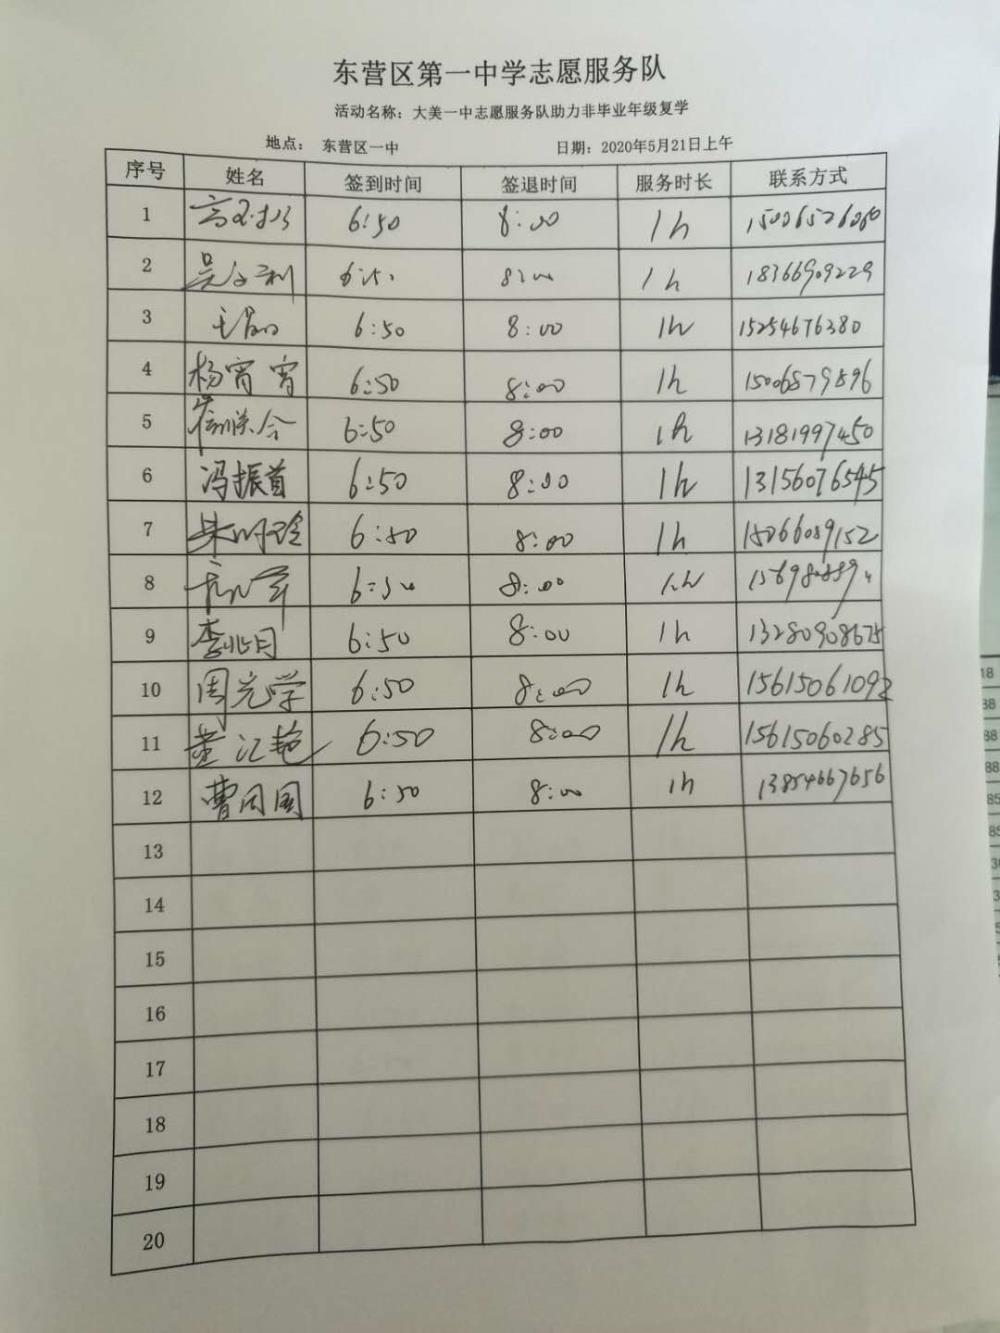 东营区第一中学志愿服务队
活动名称：大美一中志愿服务队助力非毕业年级复学
地点： 东营区一中 日期：2020年5月21日上午
序号 姓名 签到时间 签退时间 服务时长 联系方式
1 6:50 8:00 1h 15006526060
2 6:50 8:00 1h 18366909229
3 6:50 8:00 1h 15254676380
4 杨宵宵 6:50 8:00 1h 15006879896
5 6:50 8:00 1h 13181997450
6 冯振首 6:50 8:00 1h 13156076545
7 6:50 8:00 1h 15066089152
8 6:50 8:00 1h
9 李兆月 6:50 8:00 1h 13280908675
10 周光学 6:50 8:00 1h 15615061092
11 董江艳 6:50 8:00 1h 15615060285
12 曹同国 6:50 8:00 1h 13854667656
13
14
15
16
17
18
19
20
18
38
88
88
85